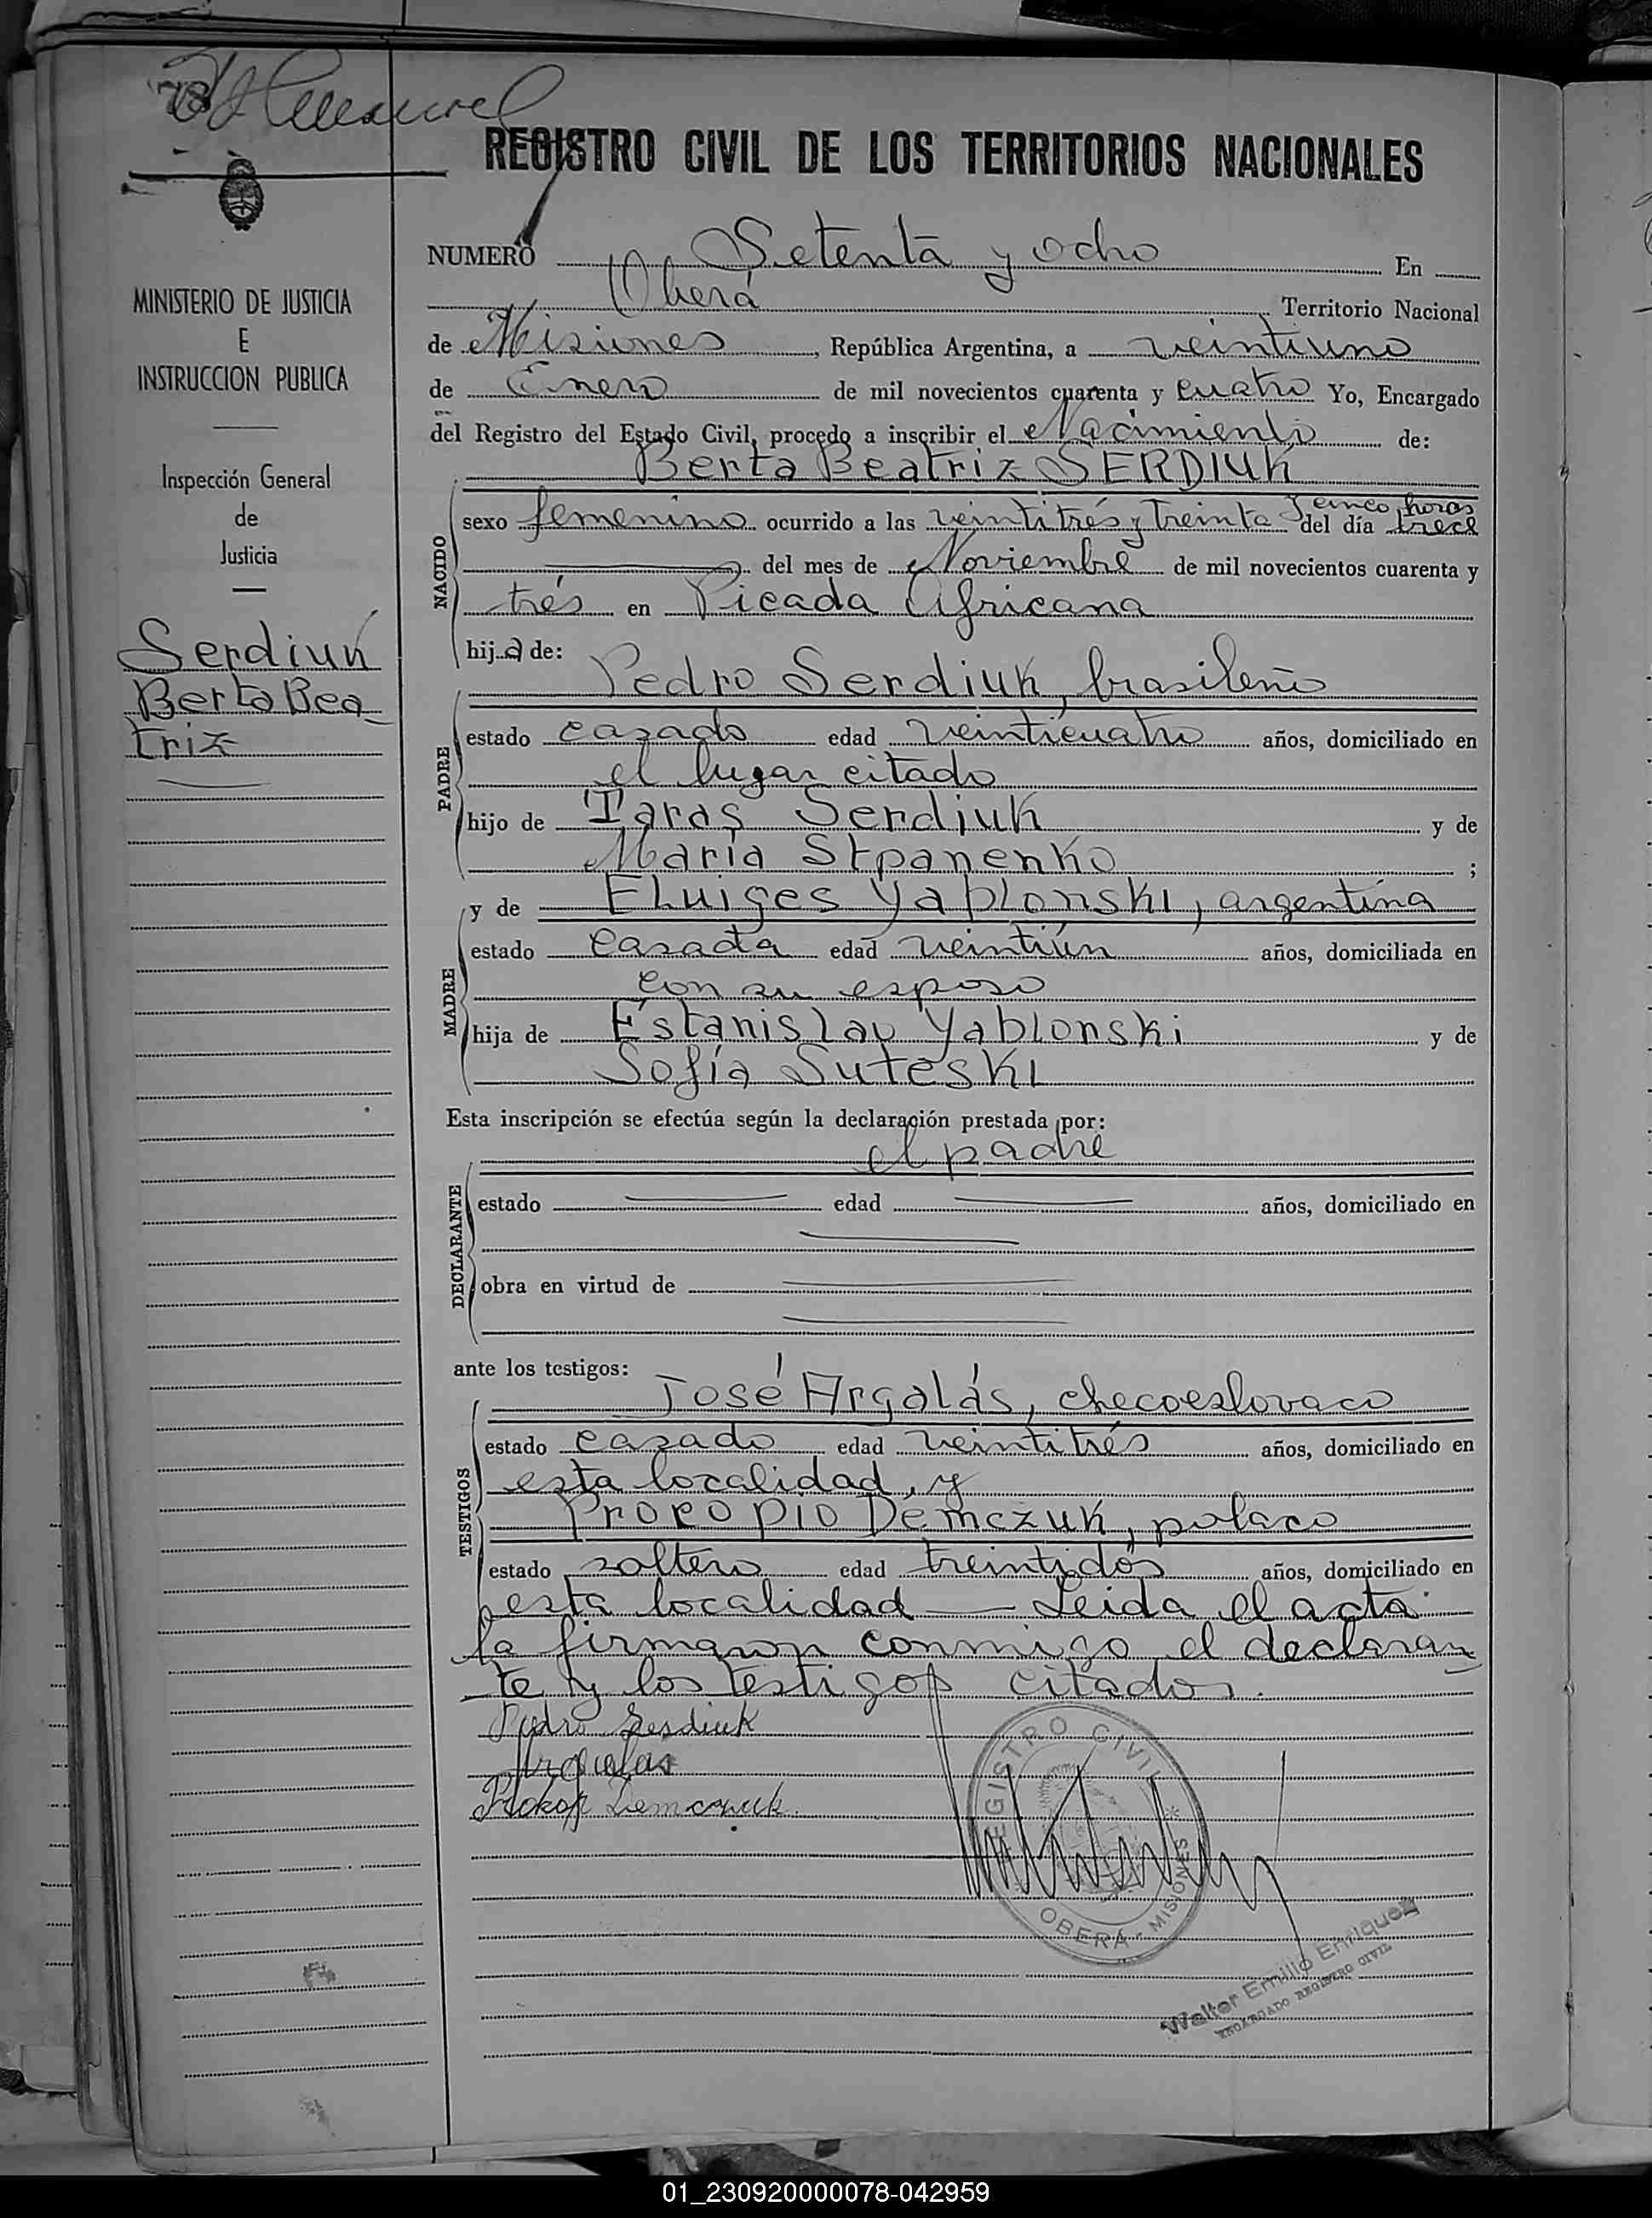 78
REGISTRO CIVIL DE LOS TERRITORIOS NACIONALES
MINISTERIO DE JUSTICIA
E
INSTRUCCION PUBLICA
Inspección General
de
Justicia
Serdiuk
Berta Bea_
triz
NUMERO Setenta y ocho En
Oberá Territorio Nacional
de Misiones, República Argentina, a veintiuno
de Enero de mil novecientos cuarenta y cuatro Yo, Encargado
del Registro del Estado Civil, procedo a inscribir el Nacimiento de:
Berta Beatriz SERDIUK
NACIDO
y cinco horas
sexo femenino ocurrido a las veintitrés y treinta del día trece
del mes de Noviembre de mil novecientos cuarenta y
trés en Picada Africana
hija de:
Pedro Serdiuk, brasileño
PADRE
estado casado edad veinticuatro años, domiciliado en
el lugar citado
hijo de Taras Serdiuk y de
María Stpanenko ;
y de Eluiges Yablonski, argentina
MADRE
estado casada edad veintiún años, domiciliada en
con su esposo
hija de Estanislau Yablonski y de
Sofía Suteski
Esta inscripción se efectúa según la declaración prestada por:
el padre
DECLARANTE
estado edad años, domiciliado en
obra en virtud de
ante los testigos:
José Argalás, checoeslovaco
TESTIGOS
estado casado edad veintitrés años, domiciliado en
esta localidad, y
Procopio Demczuk, polaco
estado soltero edad treintidós años, domiciliado en
esta localidad — Leida el acta
la firmaron conmigo el declaran_
te y los testigos citados.
Pedro Serdiuk
Argalas
Prokop Demczuk.
REGISTRO CIVIL
OBERA - MISIONES
Walter Emilio Enriquez
ENCARGADO REGISTRO CIVIL
01_230920000078-042959